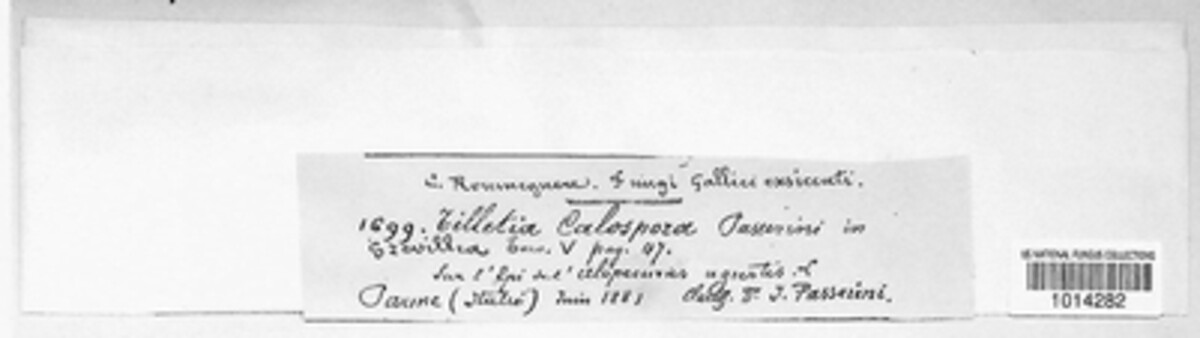 C. Roumeguere. Fungi Gallici exsiccati.
1699. Tilletia Calospora Passerini in
Grevillea Tom. V pag. 47.
Sur l'Epi de l'alopecurus agrestis. L
Parme (Italie) Juin 1881 J. Passerini.
US NATIONAL FUNGUS COLLECTIONS
1014282